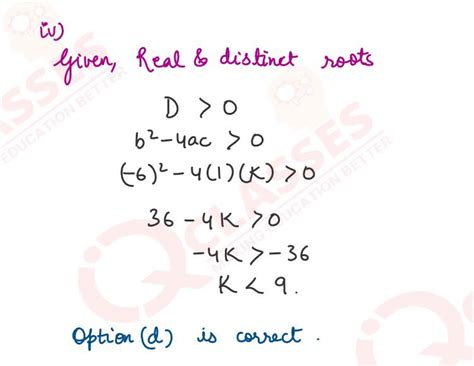 iv)
Given, Real & distinct roots
D > 0
b² - 4ac > 0
(-6)² - 4(1)(K) > 0
36 - 4K > 0
-4K > -36
K < 9.
Option (d) is correct.
CLASSES
MAKING EDUCATION BETTER